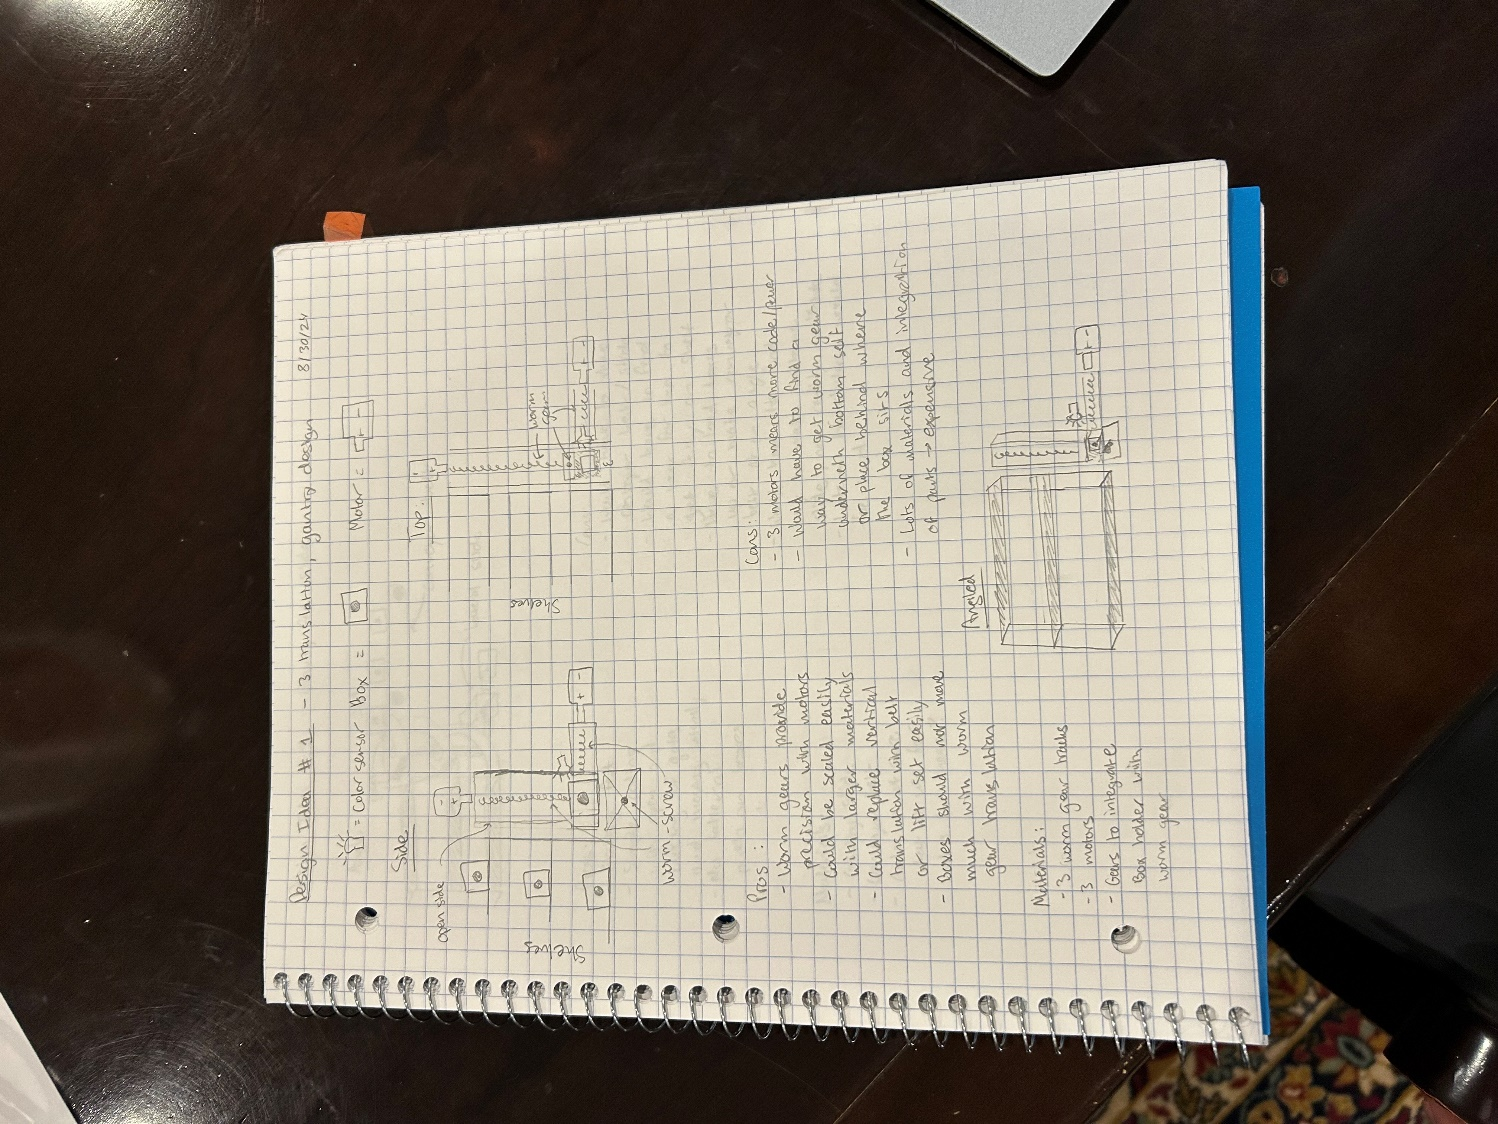 Design Idea #1 - 3 translation, gantry design 8/30/24
= Color sensor Box = Motor = + -
Side
open side
Shelves
- +
+ -
worm-screw
Top:
- +
worm gear
+ -
Shelves
Pros:
- Worm gears provide
precision with motors
- Could be scaled easily
with larger materials
- Could replace vertical
translation with belt
or lift set easily
- Boxes should not move
much with worm
gear translation
Cons:
- 3 motors means more code/power
- Would have to find a
way to get worm gear
underneath bottom self
or place behind where
the box sits
- Lots of materials and integration
of parts → expensive
Materials:
- 3 worm gear tracks
- 3 motors
- Gears to integrate
Box holder with
worm gear
Angled
+ -